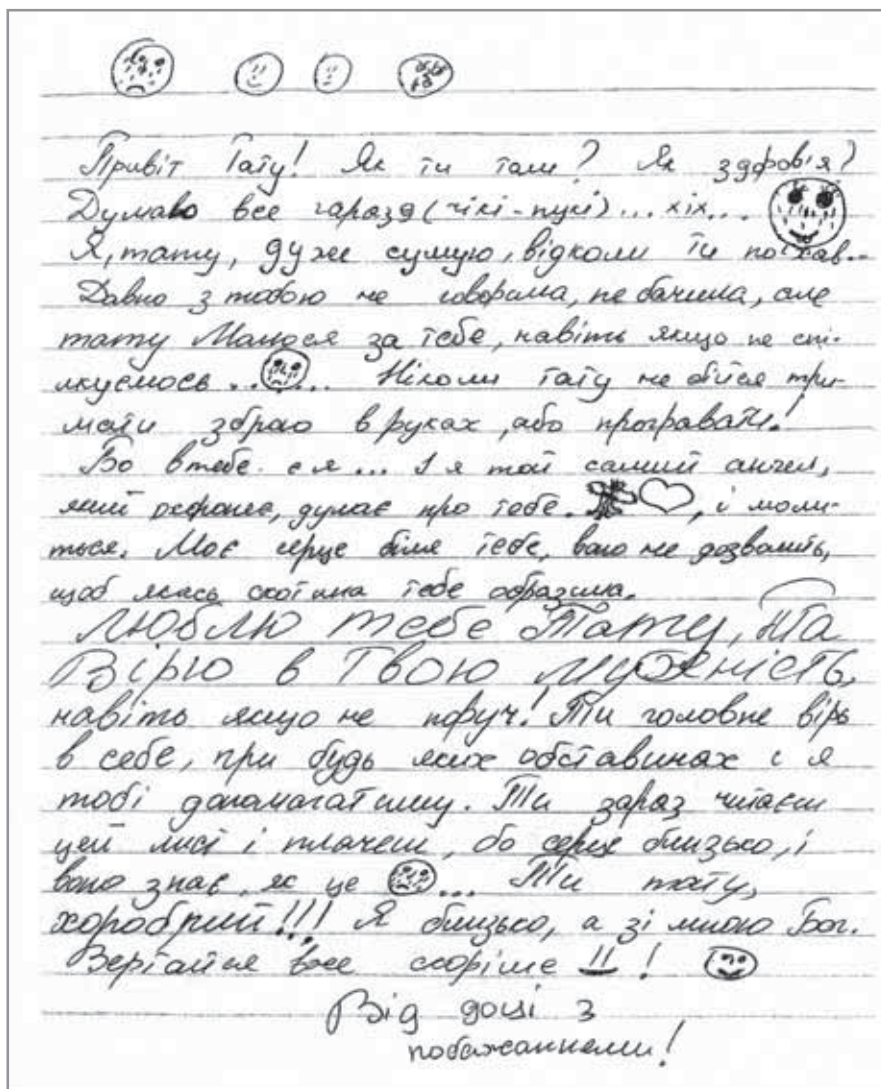 Привіт Тату! Як ти там? Як здоров'я?
Думаю все гаразд (чікі-пукі)... хіх...
Я, тату, дуже сумую, відколи ти поїхав..
Давно з тобою не говорила, не бачила, але
тату Молюся за тебе, навіть якщо не спі-
лкуємось..... Ніколи тату не бійся три-
мати зброю в руках, або програвати!
Бо в тебе є я... І я той самий ангел,
який охороняє, думає про тебе. , і моли-
ться. Моє серце біля тебе, воно не дозволить,
щоб якась скотина тебе образила.
Люблю тебе Тату, та
Вірю в Твою мужність,
навіть якщо не поруч! Ти головне вірь
в себе, при будь яких обставинах і я
тобі допомагатиму. Ти зараз читаєш
цей лист і плачеш, бо серце близько, і
воно знає, як це ... Ти тату,
хоробрий!!! Я близько, а зі мною Бог.
Вертайся вже скоріше !
Від доці з
побажаннями!